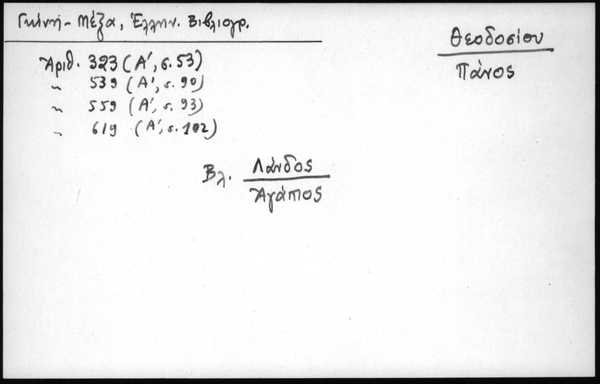 Γκίνη - Μέξα, Ἑλλην. Βιβλιογρ.
Θεοδοσίου
Πάνος
Ἀριθ. 323 (Α', σ. 53)
〃 539 (Α', σ. 90)
〃 559 (Α', σ. 93)
〃 619 (Α', σ. 102)
Βλ. Λάνδος
Ἀγάπιος